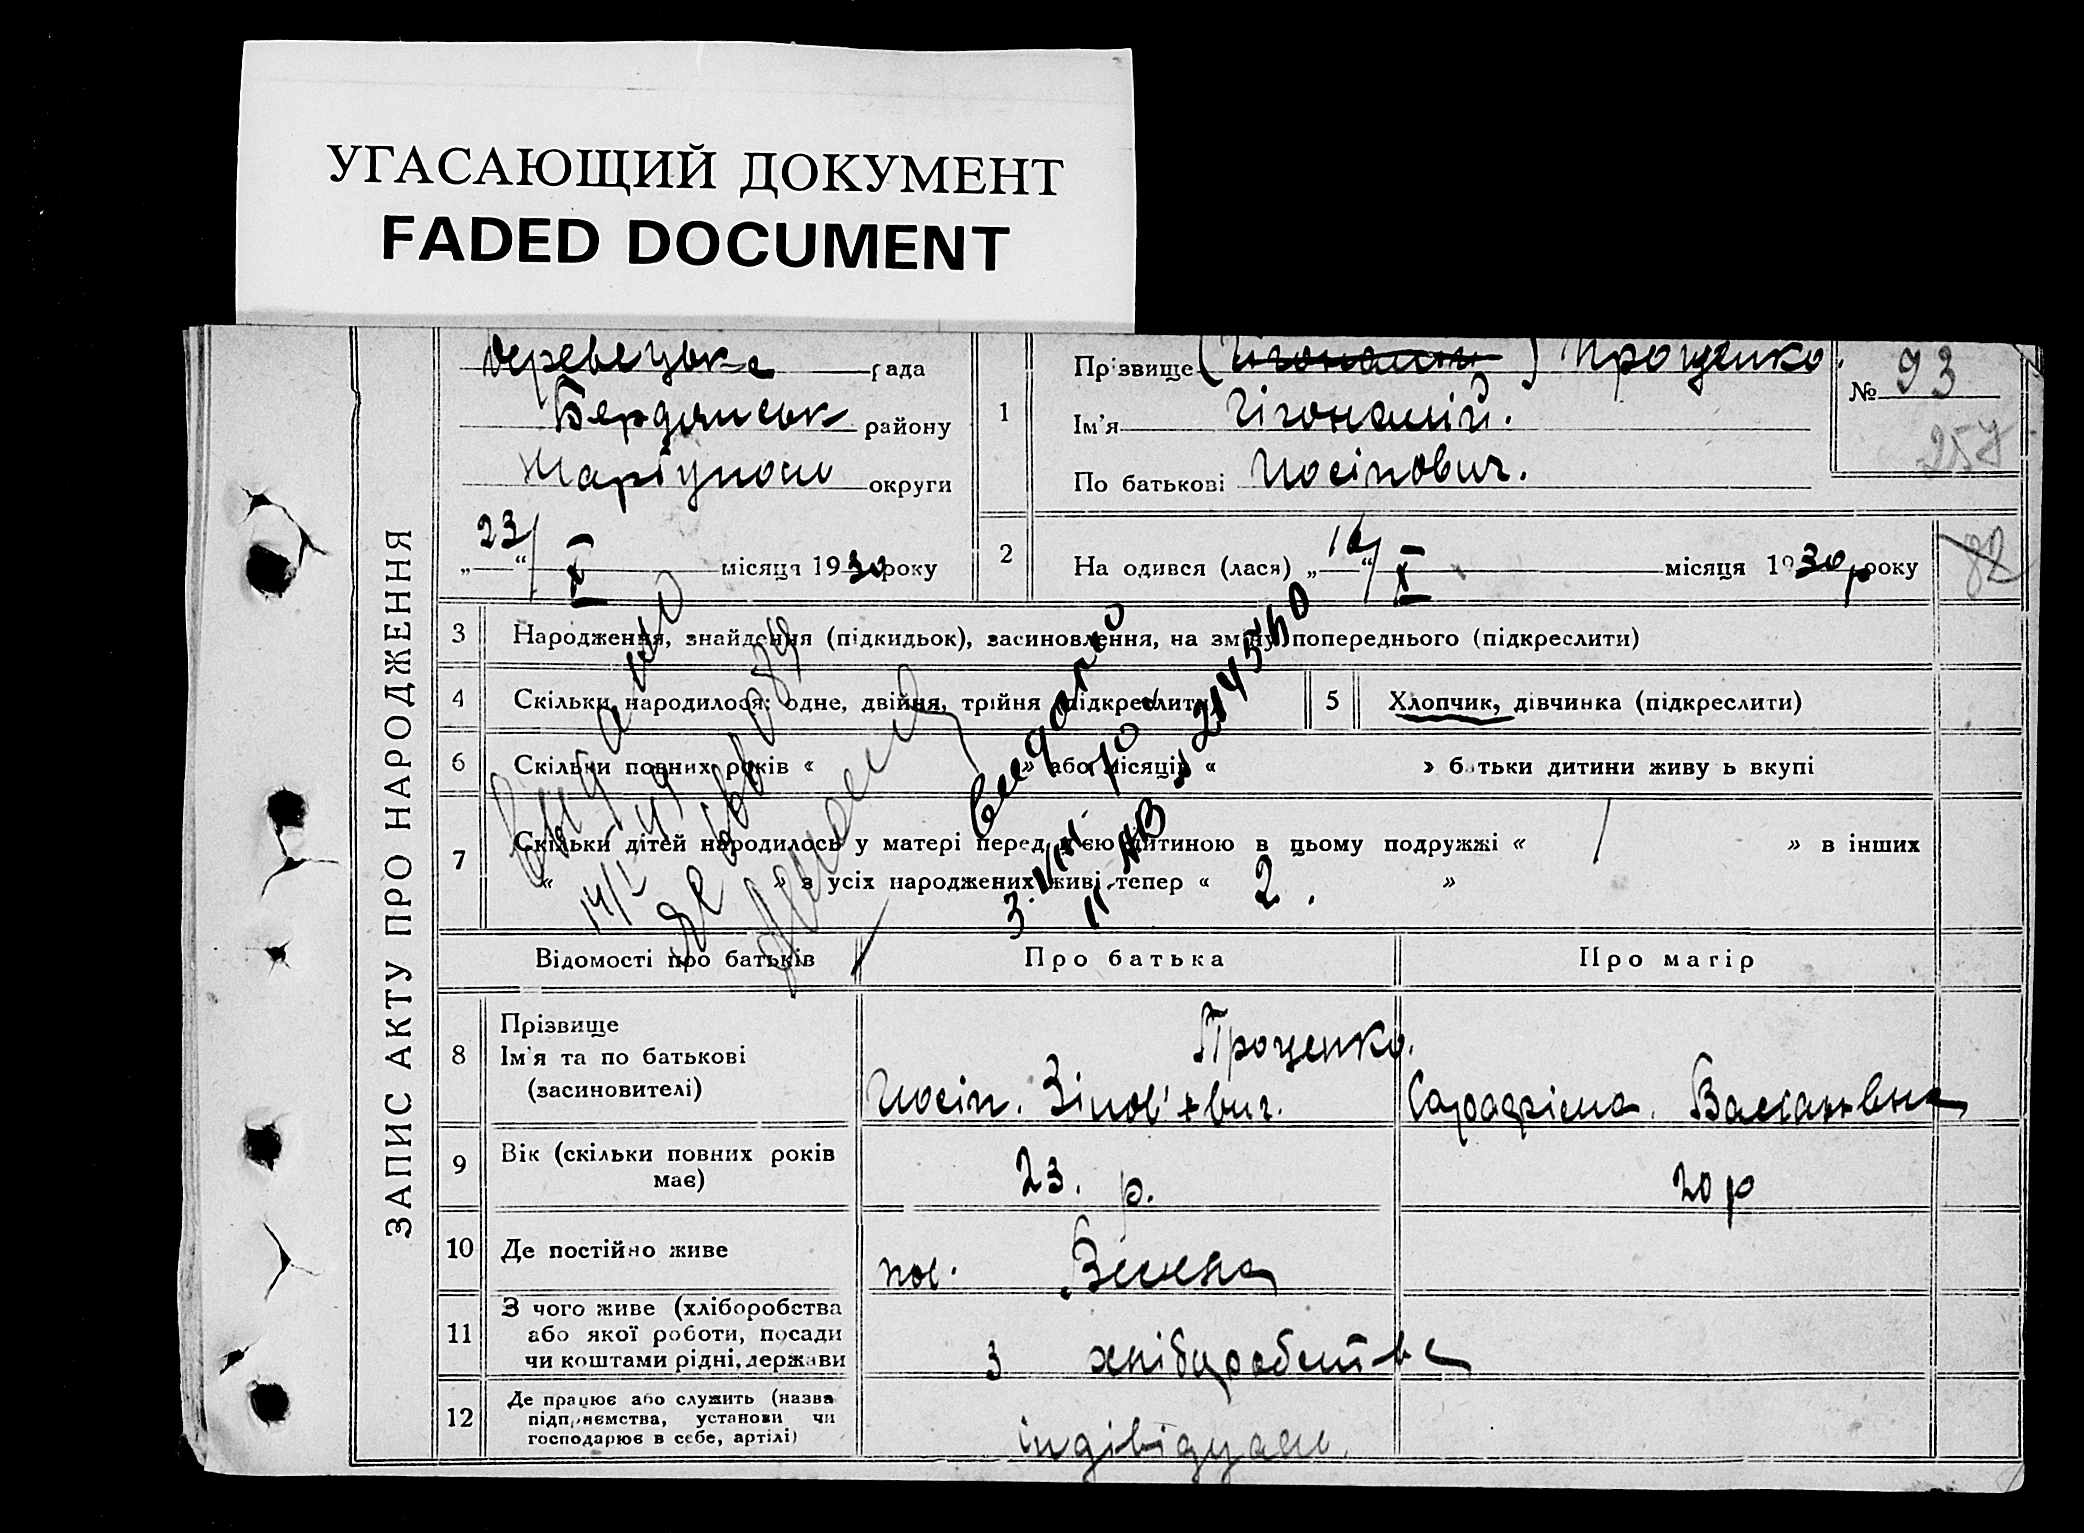 УГАСАЮЩИЙ ДОКУМЕНТ
FADED DOCUMENT
ЗАПИС АКТУ ПРО НАРОДЖЕННЯ
Деревецька рада
Бердянськ району
Маріуполь округи
„23“ X місяця 1930 року
1 Прізвище Проценко
Ім'я
По батькові Йосіпович.
№ 93
257
82
2 Народився (лася) „16“ X місяця 1930 року
3 Народження, знайдення (підкидьок), засиновлення, на зміну попереднього (підкреслити)
4 Скільки народилося: одне, двійня, трійня (підкреслити)
5 Хлопчик, дівчинка (підкреслити)
6 Скільки повних років « » або місяців « » батьки дитини живуть вкупі
7 Скільки дітей народилось у матері перед цією дитиною в цьому подружжі « / » в інших
« » з усіх народжених живі тепер « 2. »
Відомості про батьків Про батька Про матір
8 Прізвище
Ім'я та по батькові
(засиновителі)
Проценко.
Йосіп. Зінов'євич.
9 Вік (скільки повних років
має)
23. р.
20 р
10 Де постійно живе
пос.
11 З чого живе (хліборобства
або якої роботи, посади
чи коштами рідні, держави
з хліборобства
12 Де працює або служить (назва
підприємства, установи чи
господарює в себе, артілі)
індівідуаль.